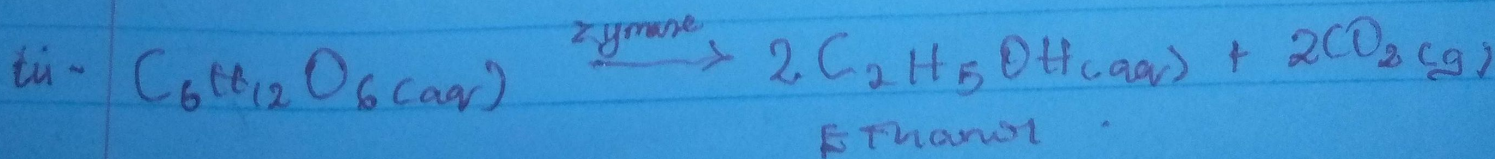 tii- C₆H₁₂O₆(aq) zymase → 2C₂H₅OH(aq) + 2CO₂(g)
Ethanol